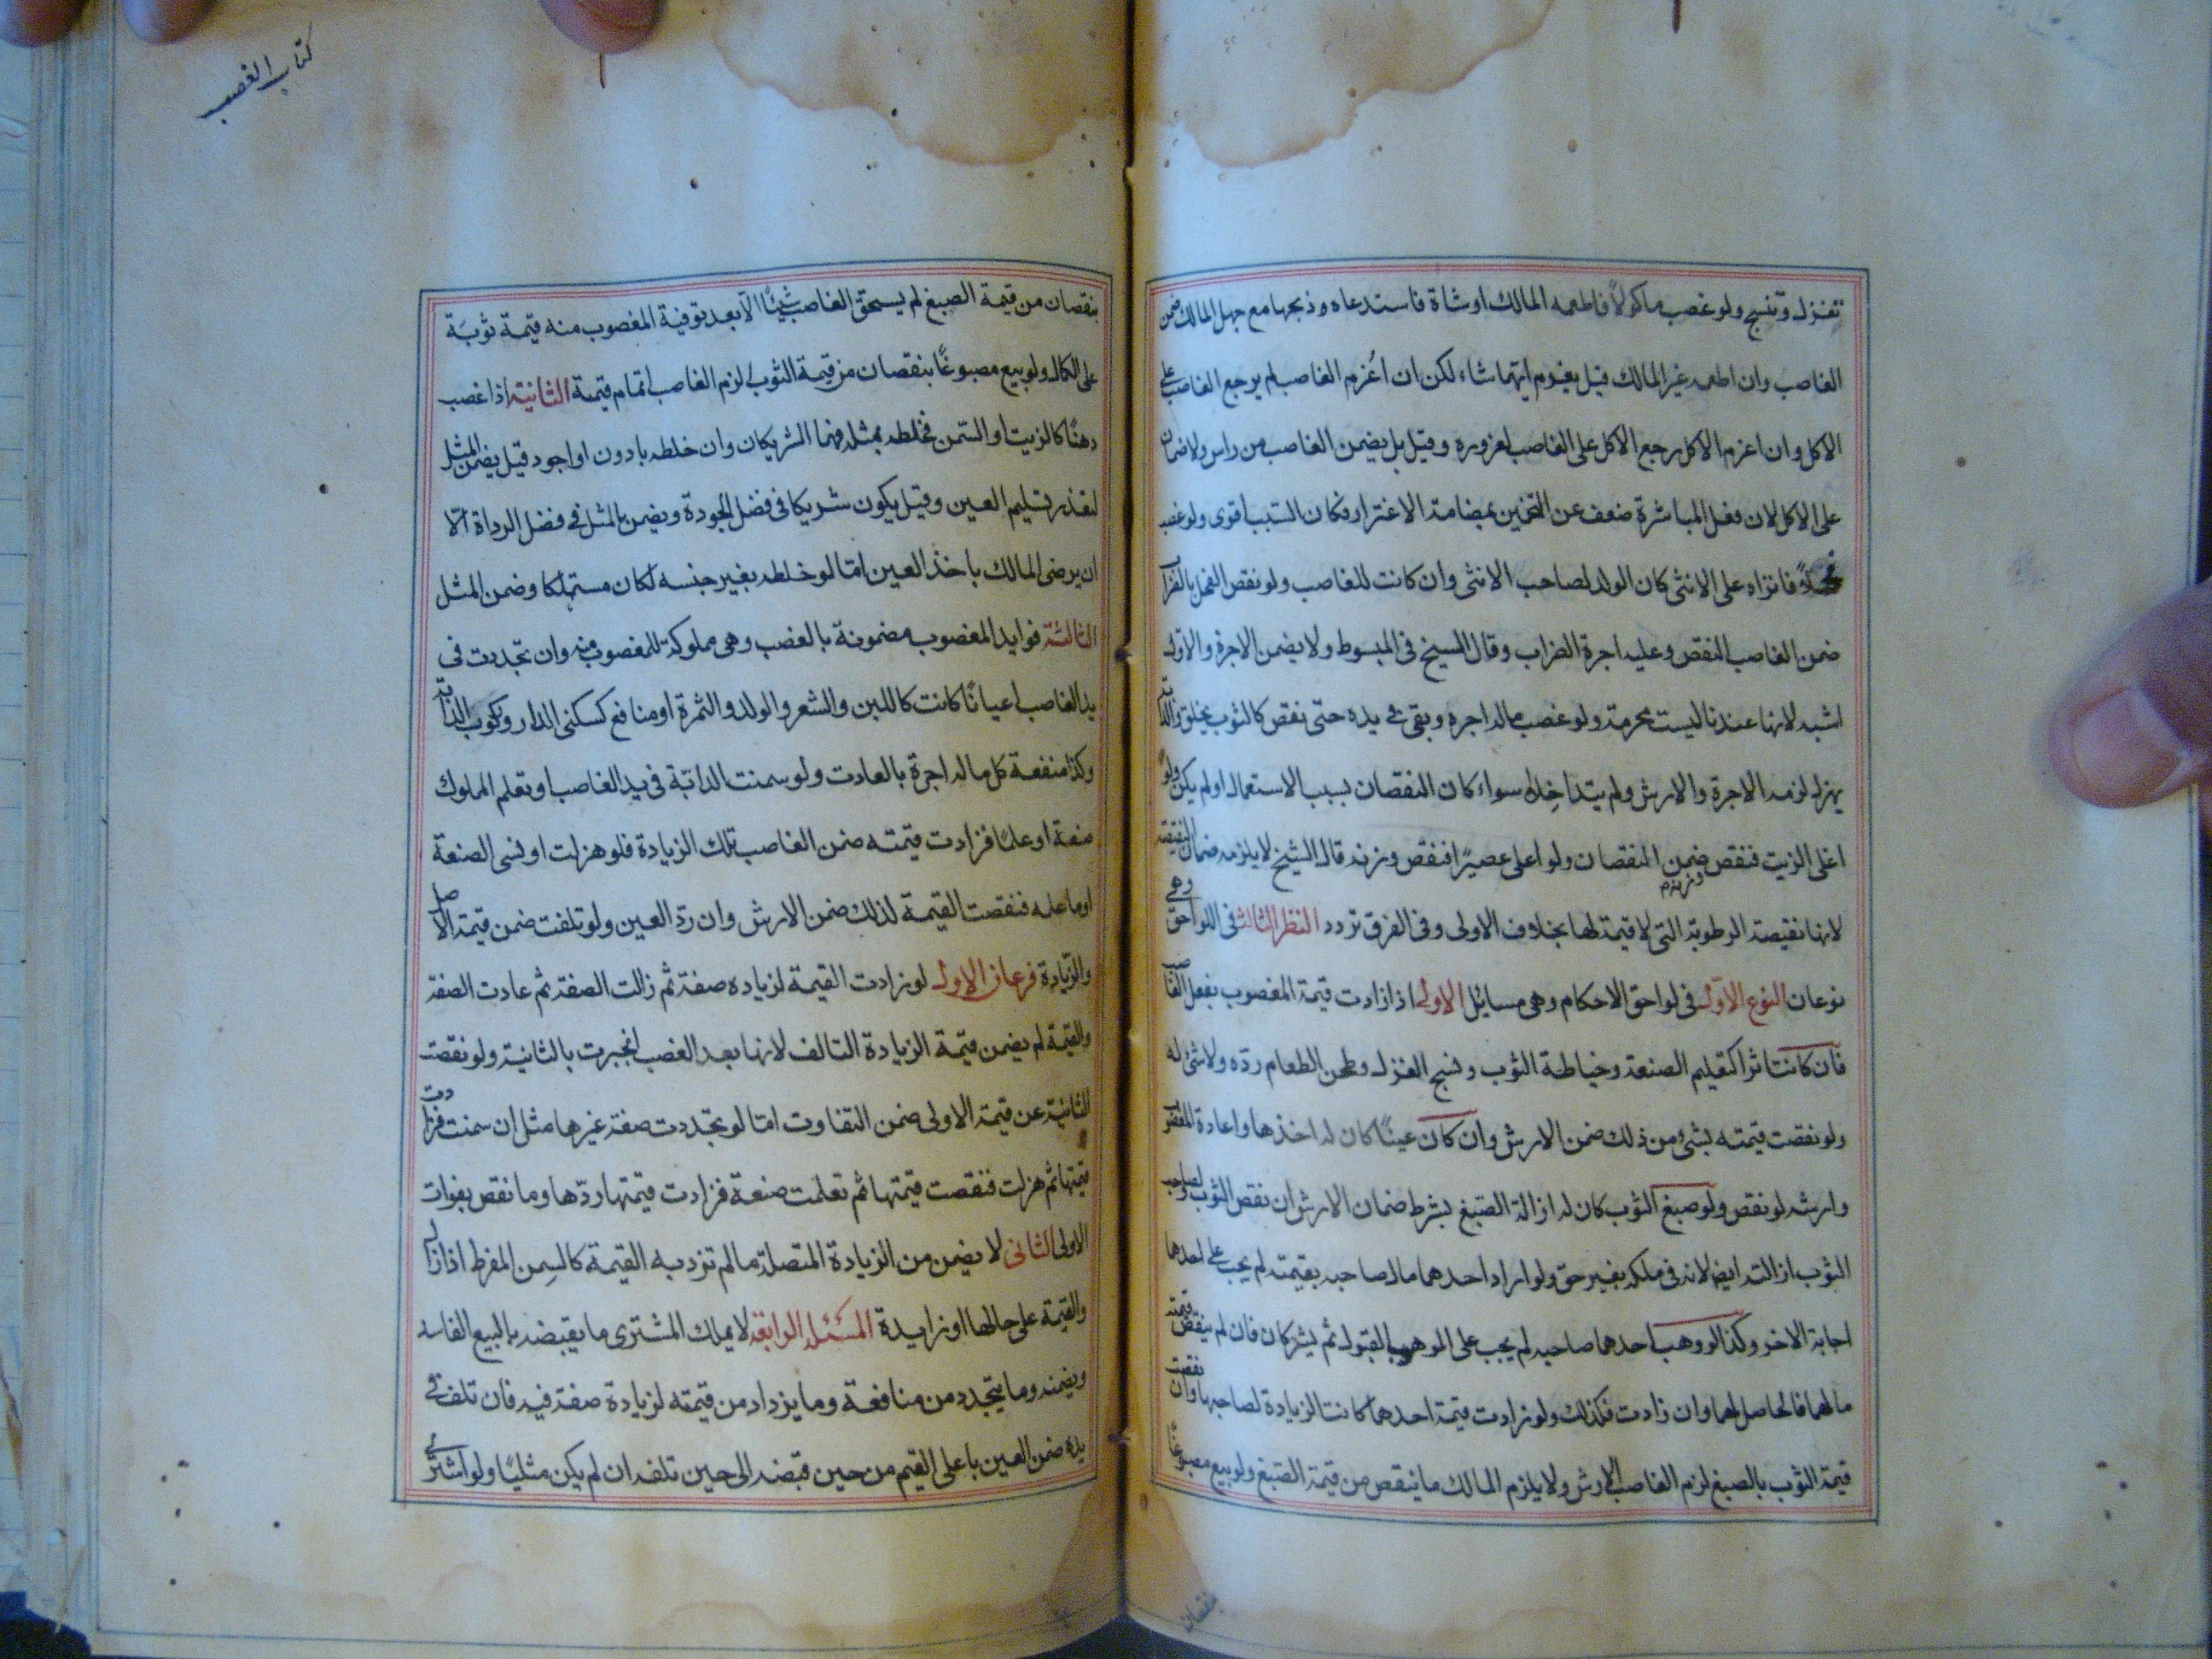 تغزل وتنسج ولو غصب ماكولاً فاطعمه المالك او شاة فاستدعاه وذبحها مع جهل المالك ضمن
الغاصب وان اطعمه غير المالك قيل يغرم ايهما شاء لكن ان اُغرم الغاصب لم يرجع الغاصب على
الاكل وان اغرم الاكل رجع الاكل على الغاصب لغروره وقيل بل يضمن الغاصب من راس ولا ضمان
على الاكل لان فعل المباشرة ضعف عن التخمين بمضامة الاغترار فكان السبب اقوى ولو غصب
فحلاً فانزاه على الانثى كان الولد لصاحب الانثى وان كانت للغاصب ولو نقص الفحل بالضراب
ضمن الغاصب النقص وعليه اجرة الضراب وقال الشيخ في المبسوط ولا يضمن الاجرة والاول
اشبه لانها عندنا ليست محرمة ولو غصب ماله اجره وبقى في يده حتى نقص كالثوب يخلق والدابة
يهزل لزمه الاجرة والارش ولم يتداخلا سواء كان النقصان بسبب الاستعمال او لم يكن ولو
اغلى الزيت فنقص ضمن النقصان ولو اغلى عصيرًا فنقص وزنه قال الشيخ لا يلزمه ضمان النقيصة
لانها نقيصة الرطوبة التى لا قيمة لها بخلاف الاولى وفى الفرق تردد النظر الثالث فى اللواحق وهي
نوعان النوع الاول فى لواحق الاحكام وهى مسايل الاولى اذا زادت قيمة المغصوب بفعل الغاصب
فان كانت اثرا كتعليم الصنعة وخياطة الثوب ونسج الغزل وطحن الطعام رده ولا شئ له
ولو نقصت قيمته بشئ من ذلك ضمن الارش وان كان عينًا كان له اخذها واعادة المغصوب
وارشه لو نقص ولو صبغ الثوب كان له ازالة الصبغ بشرط ضمان الارش ان نقص الثوب ولصاحب
الثوب ازالته ايضا لانه فى ملكه بغير حق ولو اراد احدهما مال صاحبه بقيمته لم يجب على احدهما
اجابة الاخر وكذا لو وهب احدهما صاحبه لم يجب على الموهوب القبول ثم يشتركان فان لم ينقص قيمة
مالهما فالحاصل لهما وان زادت فكذلك ولو زادت قيمة احدهما كانت الزيادة لصاحبها وان نقصت
قيمة الثوب بالصبغ لزم الغاصب الارش ولا يلزم المالك ما ينقص من قيمة الصبغ ولو بيع مصبوغًا
بنقصان
كتاب الغصب
بنقصان من قيمة الصبغ لم يستحق الغاصب شيئًا الا بعد توفية المغصوب منه قيمة ثوبه
على الكمال ولو بيع مصبوغًا بنقصان من قيمة الثوب لزم الغاصب اتمام قيمته الثانية اذا غصب
دهنًا كالزيت او السمن فخلطه بمثله فهما الشريكان وان خلطه بادون او اجود قيل يضمن المثل
لتعذر تسليم العين وقيل يكون شريكا فى فضل الجودة ويضمن بالمثل في فضل الرداة الا
ان يرضى المالك باخذ العين اما لو خلطه بغير جنسه لكان مستهلكا وضمن المثل
الثالثة فوايد المغصوب مضمونة بالغصب وهى مملوكة للمغصوب منه وان تجددت فى
يد الغاصب اعيانًا كانت كاللبن والشعر والولد والثمرة او منافع كسكنى الدار وركوب الدابة
وكذا منفعة كل ما له اجرة بالعادت ولو سمنت الدابة فى يد الغاصب او تعلم المملوك
صنعة او علمًا فزادت قيمته ضمن الغاصب تلك الزيادة فلو هزلت او نسى الصنعة
او ما علمه فنقصت القيمة لذلك ضمن الارش وان رد العين ولو تلفت ضمن قيمة الاصل
والزيادة فرعان الاول لو زادت القيمة لزياده صفة ثم زالت الصفة ثم عادت الصفة
والقيمة لم يضمن قيمة الزيادة التالف لانها بعد الغصب انجبرت بالثانية ولو نقصت
الثانية عن قيمة الاولى ضمن التفاوت اما لو تجددت صفة غيرها مثل ان سمنت فزادت
قيمتها ثم هزلت فنقصت قيمتها ثم تعلمت صنعة فزادت قيمتها ردها وما نقص بفوات
الاولى الثانى لا يضمن من الزيادة المتصلة ما لم تزد به القيمة كالسمن المفرط اذا زال
والقيمة على حالها او زايدة المسئلة الرابعة لا يملك المشترى ما يقبضه بالبيع الفاسد
ويضمنه وما يتجدد من منافعة وما يزداد من قيمته لزيادة صفة فيه فان تلف في
يده ضمن العين باعلى القيم من حين قبضه الى حين تلفه ان لم يكن مثليًا ولو اشترى